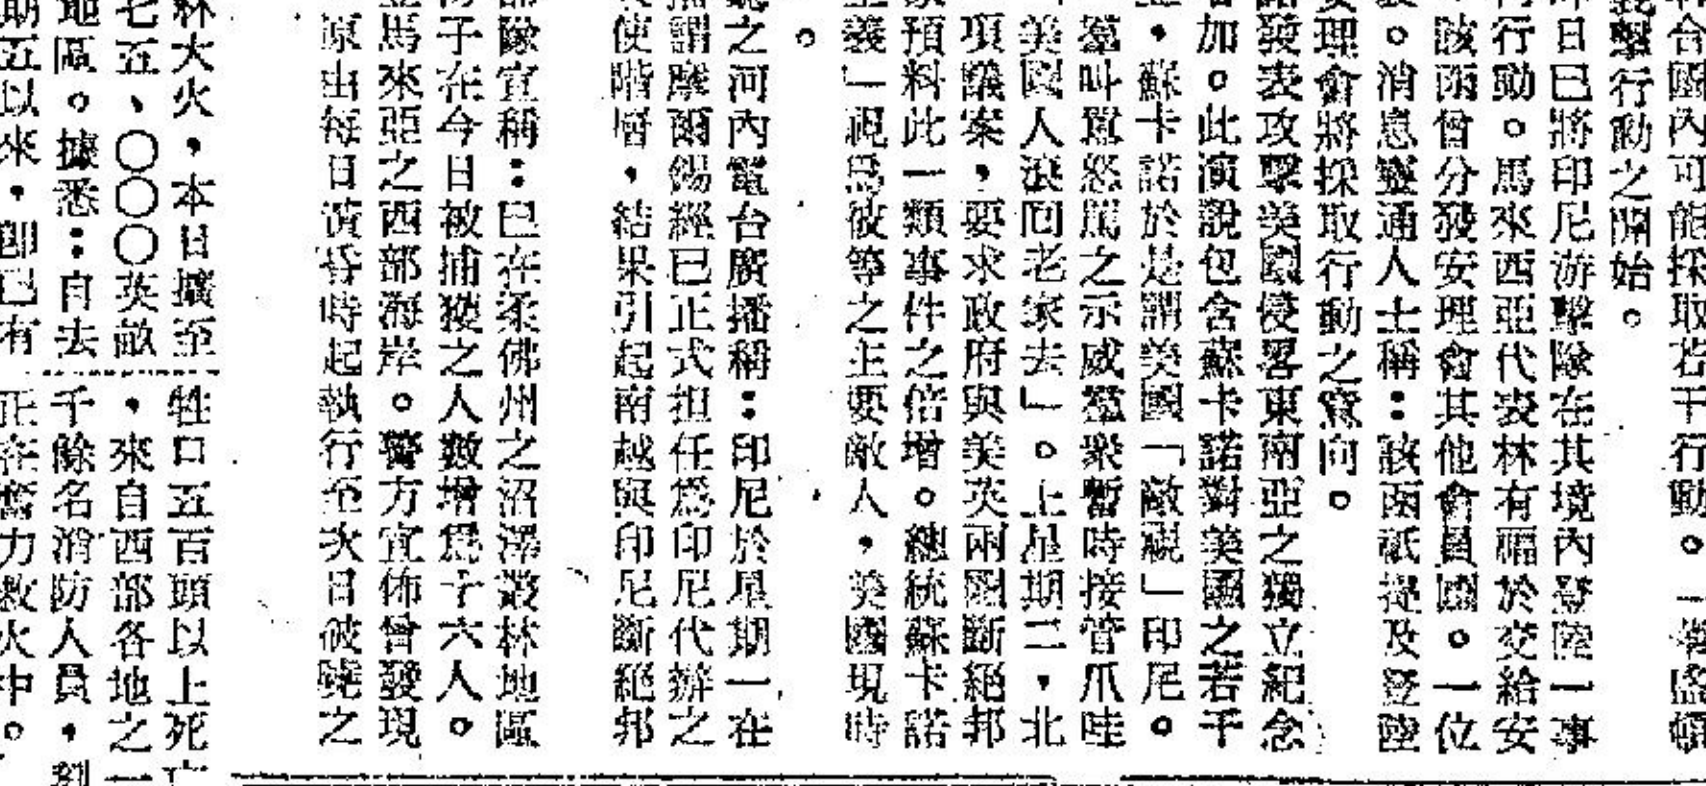 聯合國內可能採取若干行動。一華盛頓
義擊行動之開始。
昨日已將印尼游擊隊在其境內登陸一事
行動。馬來西亞代表林有福於交給安
，該函曾分發安理會其他會員國。一位
表。消息靈通人士稱：該函祇提及登陸
安理會將採取行動之意向。
發表攻擊美國侵畧東南亞之獨立紀念
加。此演說包含蘇卡諾對美國之若干
，蘇卡諾於是謂美國「敵視」印尼。
羣叫囂怒罵之示威羣衆暫時接管爪哇
美國人滾回老家去」。上星期二，北
項議案，要求政府與美英兩國斷絕邦
預料此一類事件之倍增。總統蘇卡諾
義「視爲彼等之主要敵人，美國現時
。
之河內電台廣播稱：印尼於星期一在
謂摩爾錫經已正式担任爲印尼代辦之
使階層，結果引起南越與印尼斷絕邦
部隊宣稱：已在柔佛州之沼澤叢林地區
子在今日被捕獲之人數增爲十六人。
馬來亞之西部海岸。警方宣佈曾發現
原由每日黃昏時起執行至次日破曉之
林大火，本日擴至
七五、〇〇〇英畝
地區。據悉：自去
期五以來，卽已有
牲口五百頭以上死亡
，來自西部各地之一
千餘名消防人員，刻
正在奮力救火中。